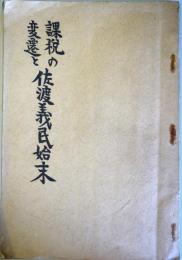 課税の
変遷と
佐渡義民始末